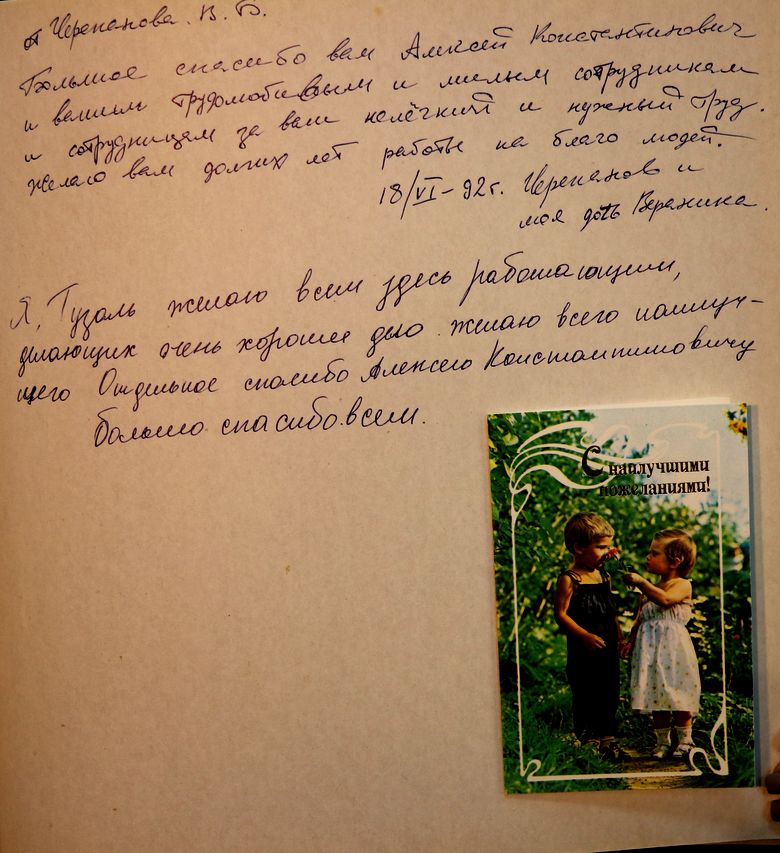 от Черепанова. В. Б.
Большое спасибо вам Алексей Константинович
и вашим трудолюбивым и милым сотрудникам
и сотрудницам за ваш нелёгкий и нужный труд.
Желаю вам долгих лет работы на благо людей.
18/VI-92г. Черепанов и
моя дочь Вераника.
Я, Гузаль желаю всем здесь работающим,
делающих очень хорошее дело. желаю всего наилуч-
щего Отдельное спасибо Алексею Константиновичу
Большо спасибо всем.
С наилучшими
пожеланиями!